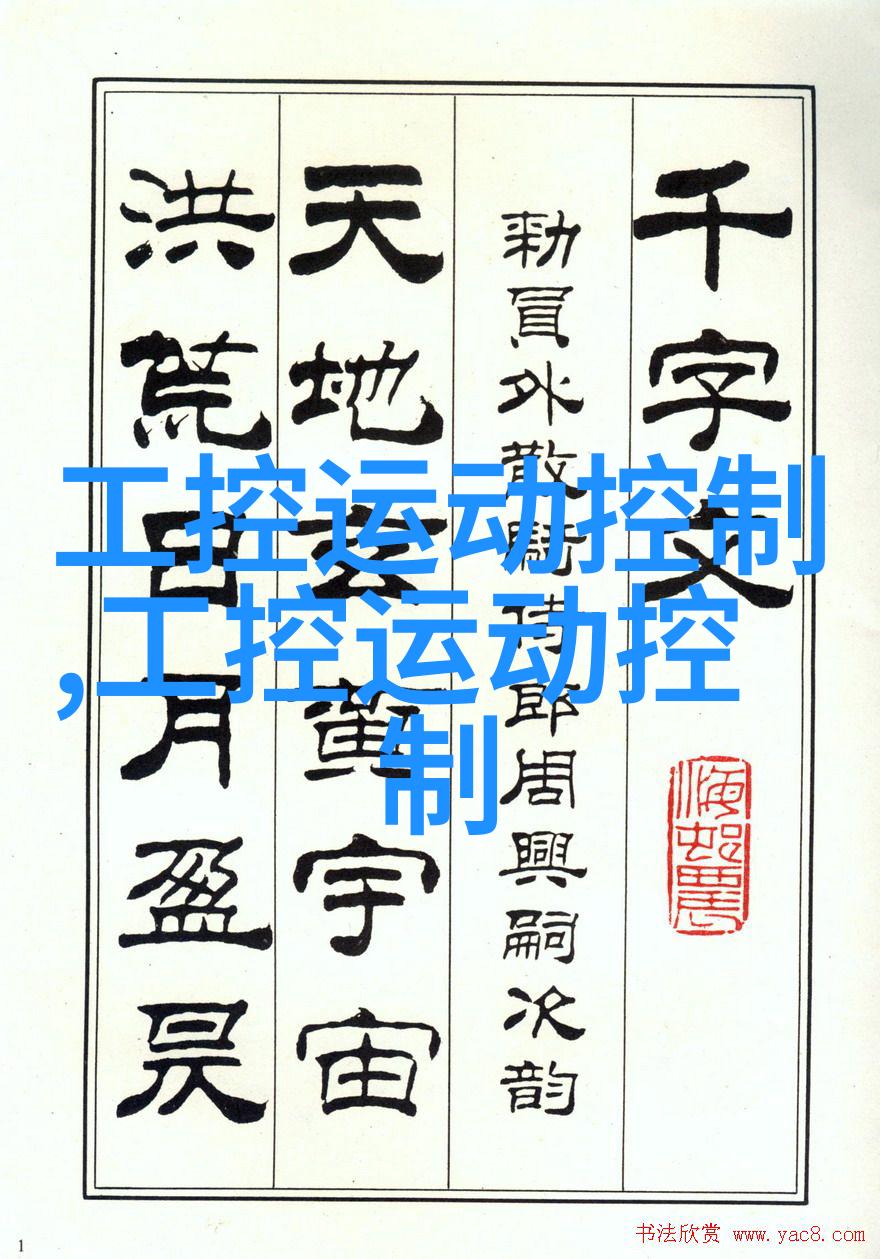 千字文
勑員外散騎侍郎周興嗣次韵
天地玄黄宇宙
洪荒日月盈昃
工控运动控制
,工控运动控
制
书法欣赏 www.yac8.com
1